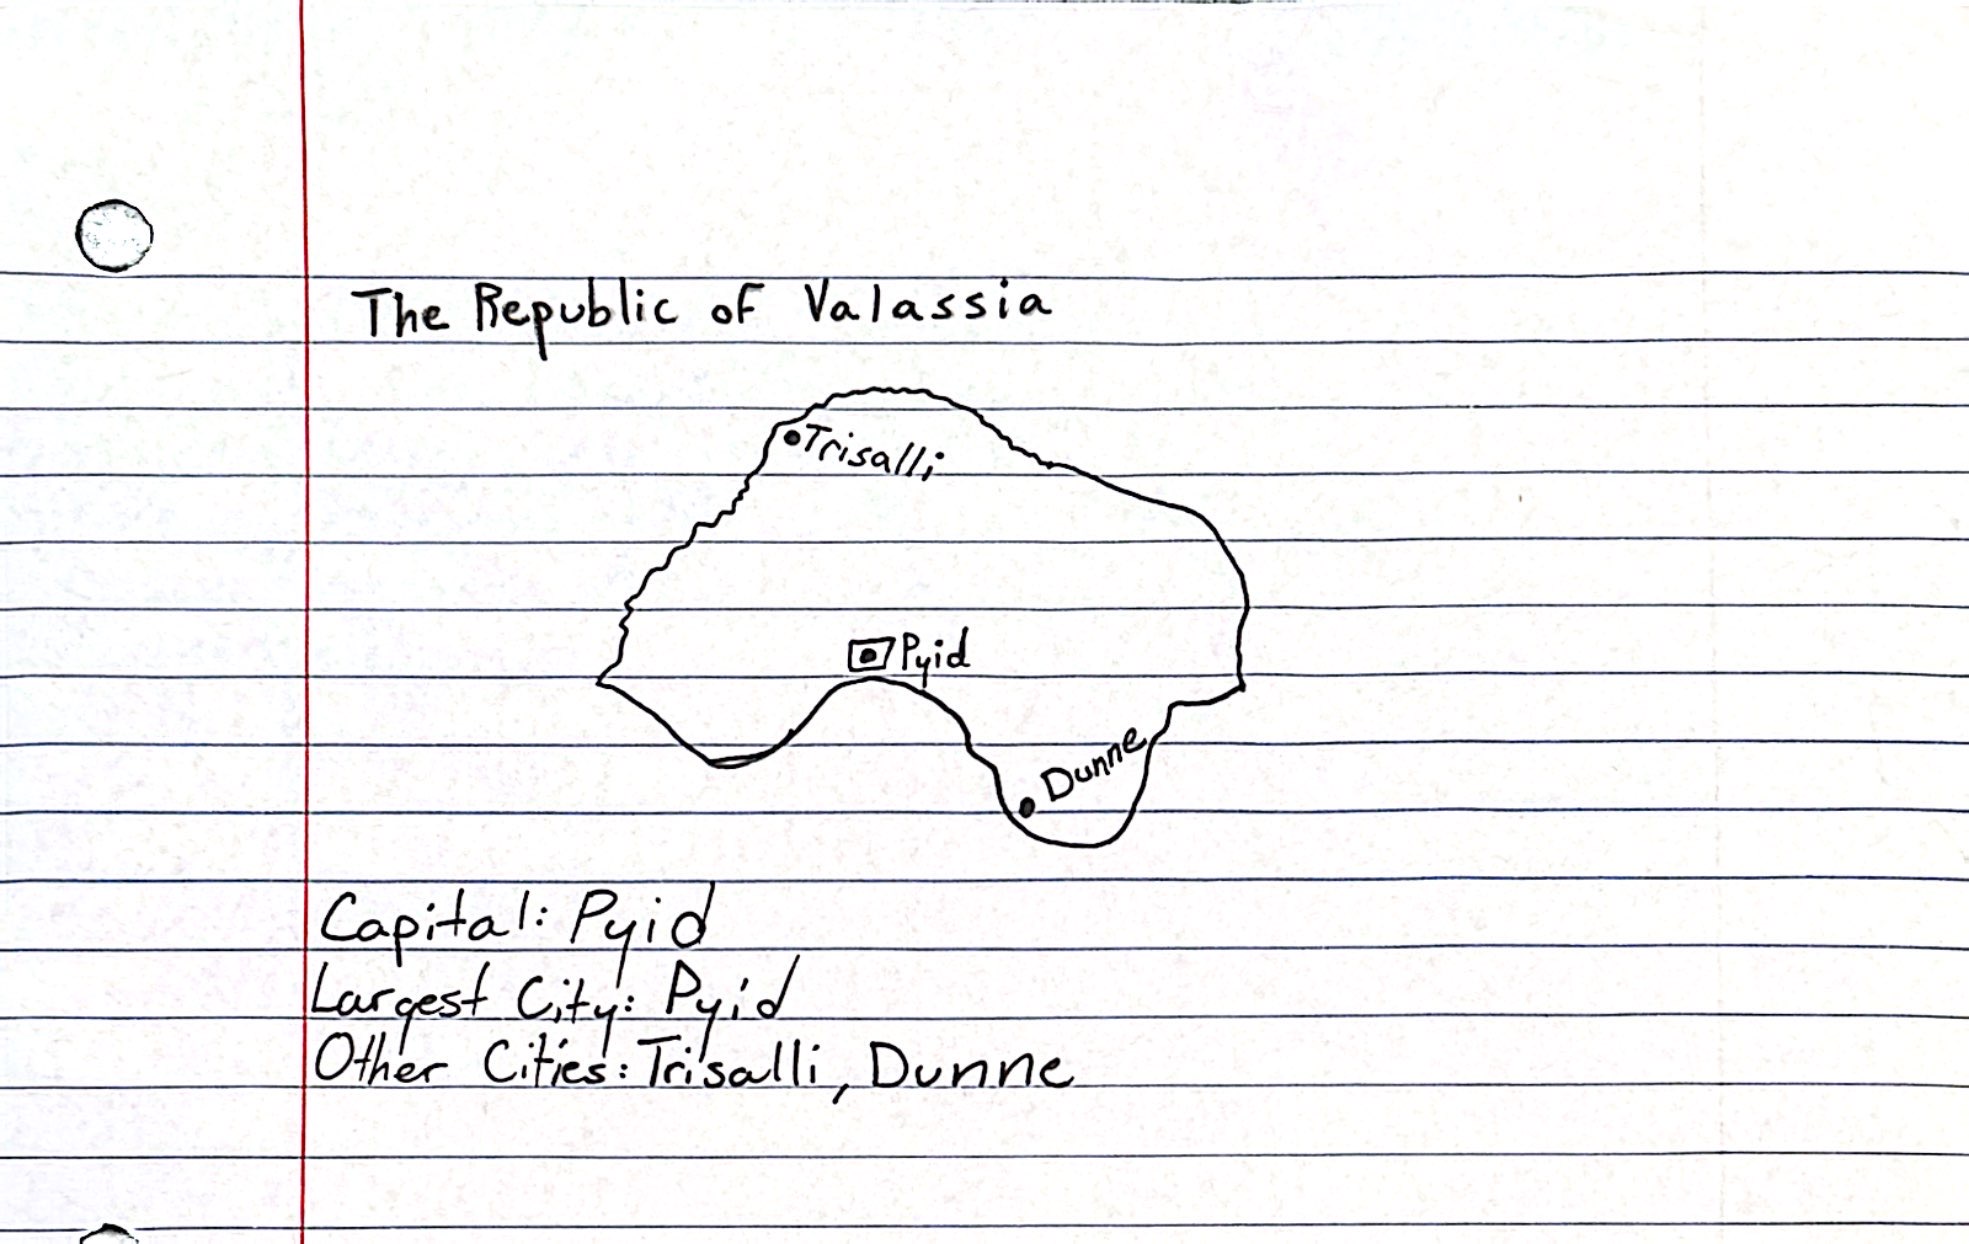 The Republic of Valassia
Trisalli
Pyid
Dunne
Capital: Pyid
Largest City: Pyid
Other Cities: Trisalli, Dunne